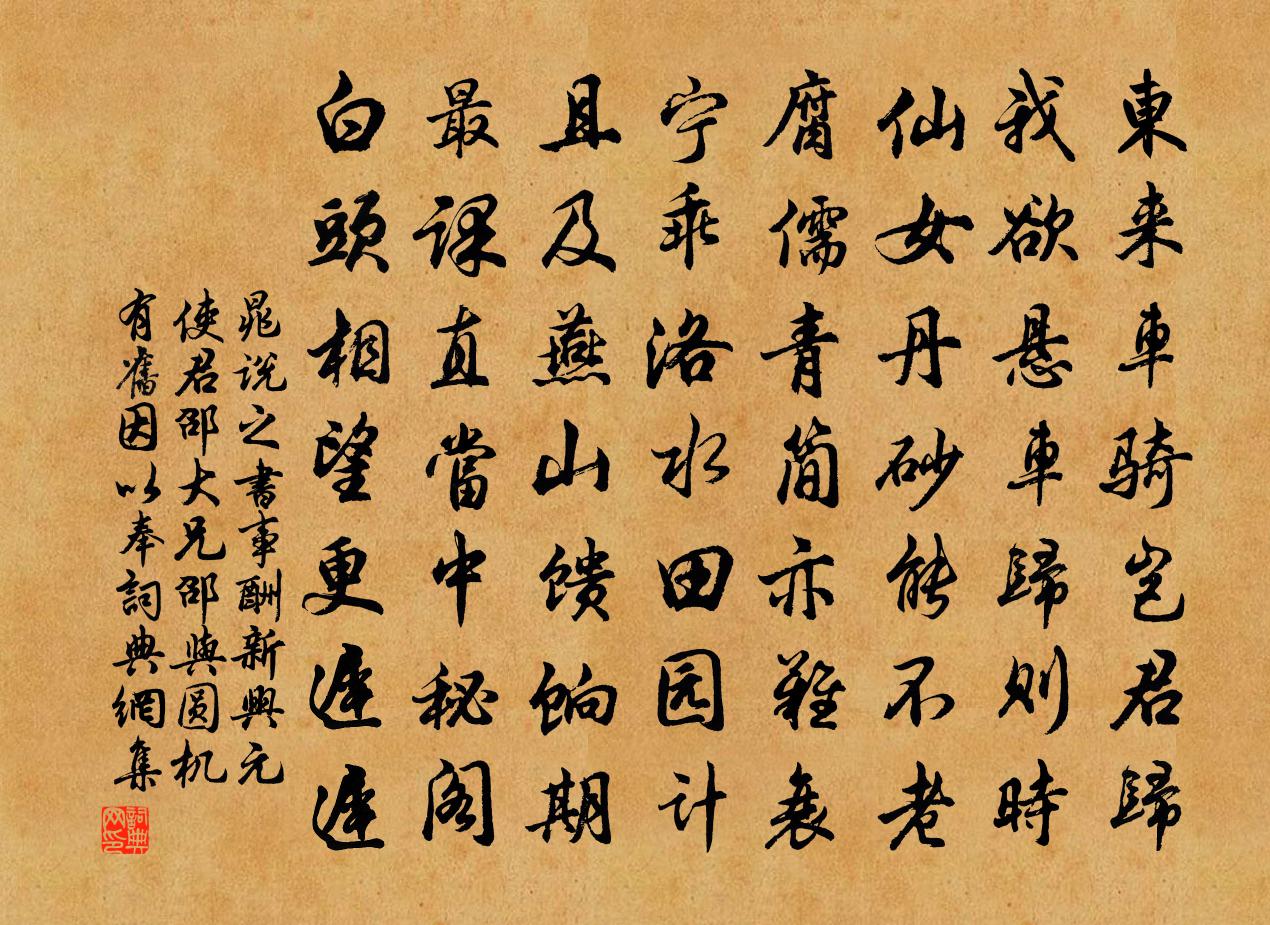 東来車騎岂君歸
我欲悬車歸則時
仙女丹砂能不老
腐儒青简亦難衰
宁乖洛水田园计
且及燕山馈饷期
最课直當中秘阁
白頭相望更遲遲
晁说之書事酬新興元
使君邵大兄邵與圆机
有舊因以奉詞典網集
詞典網印